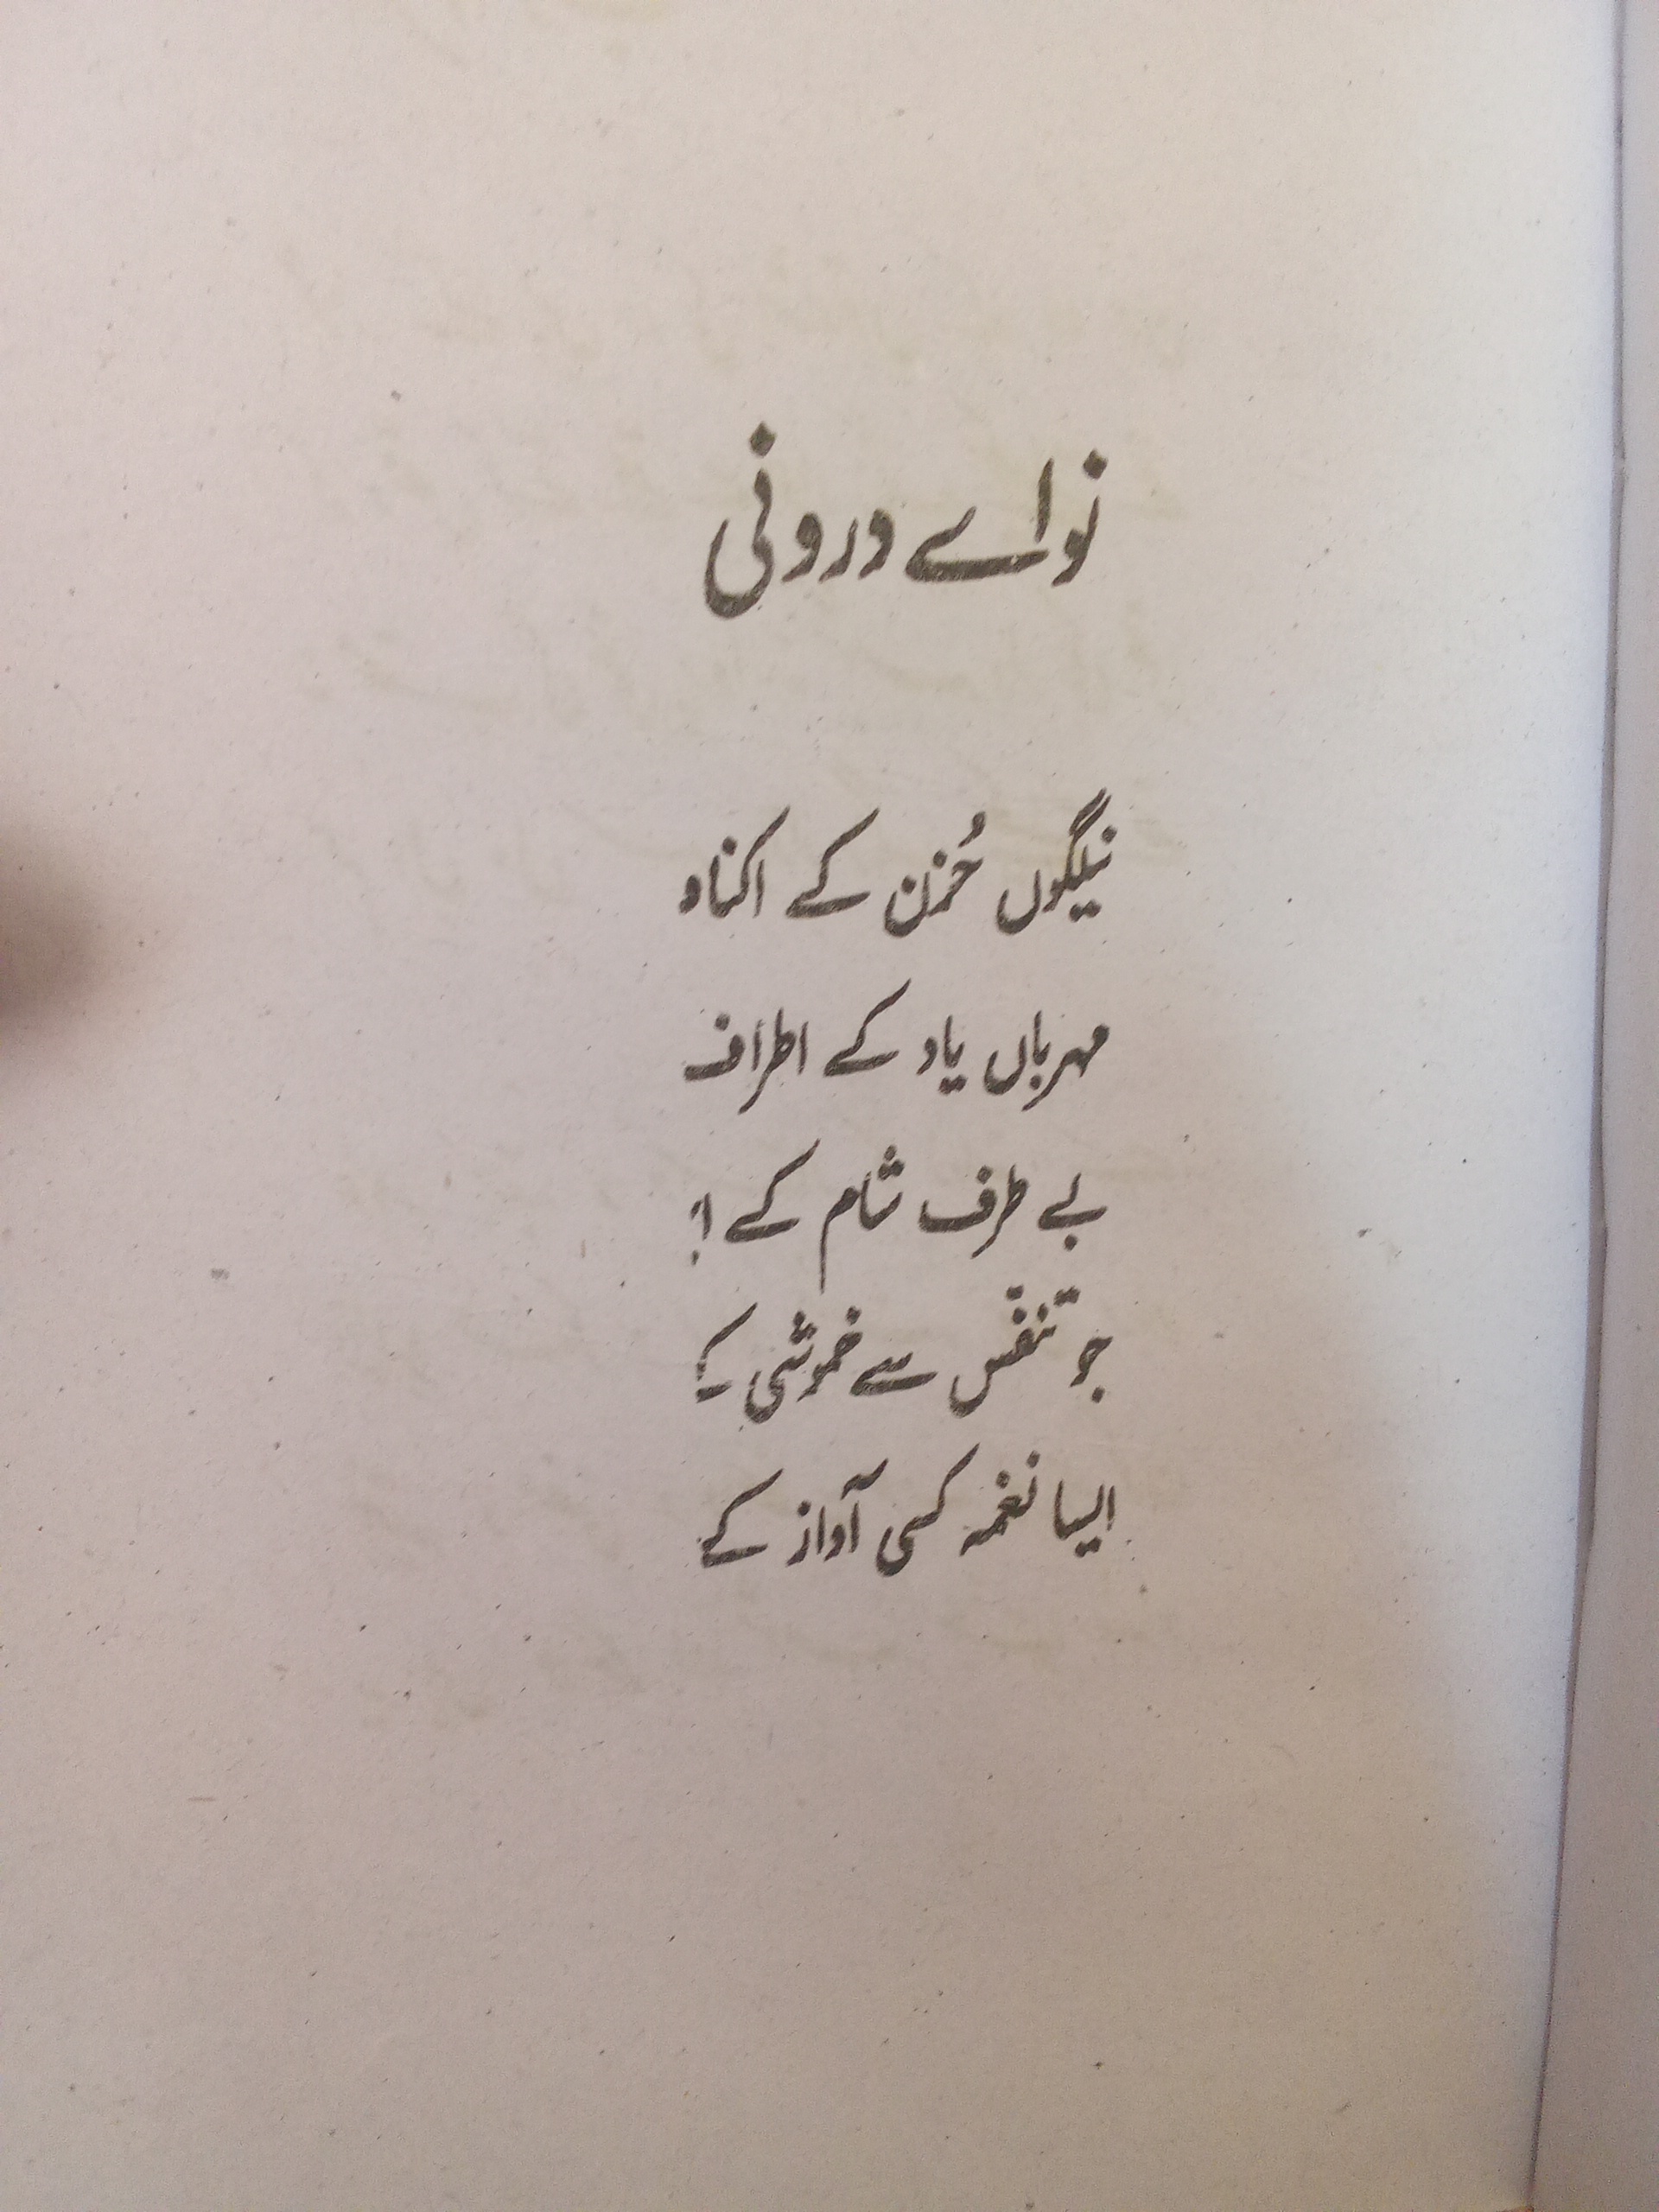 نواے درونی
نیلگوں حُزن کے اکناد
مہرباں یاد کے اطراف
بے طرف شام کے اِ
جو تنفّس سے خموشی کے
ایسا نغمہ کسی آواز کے